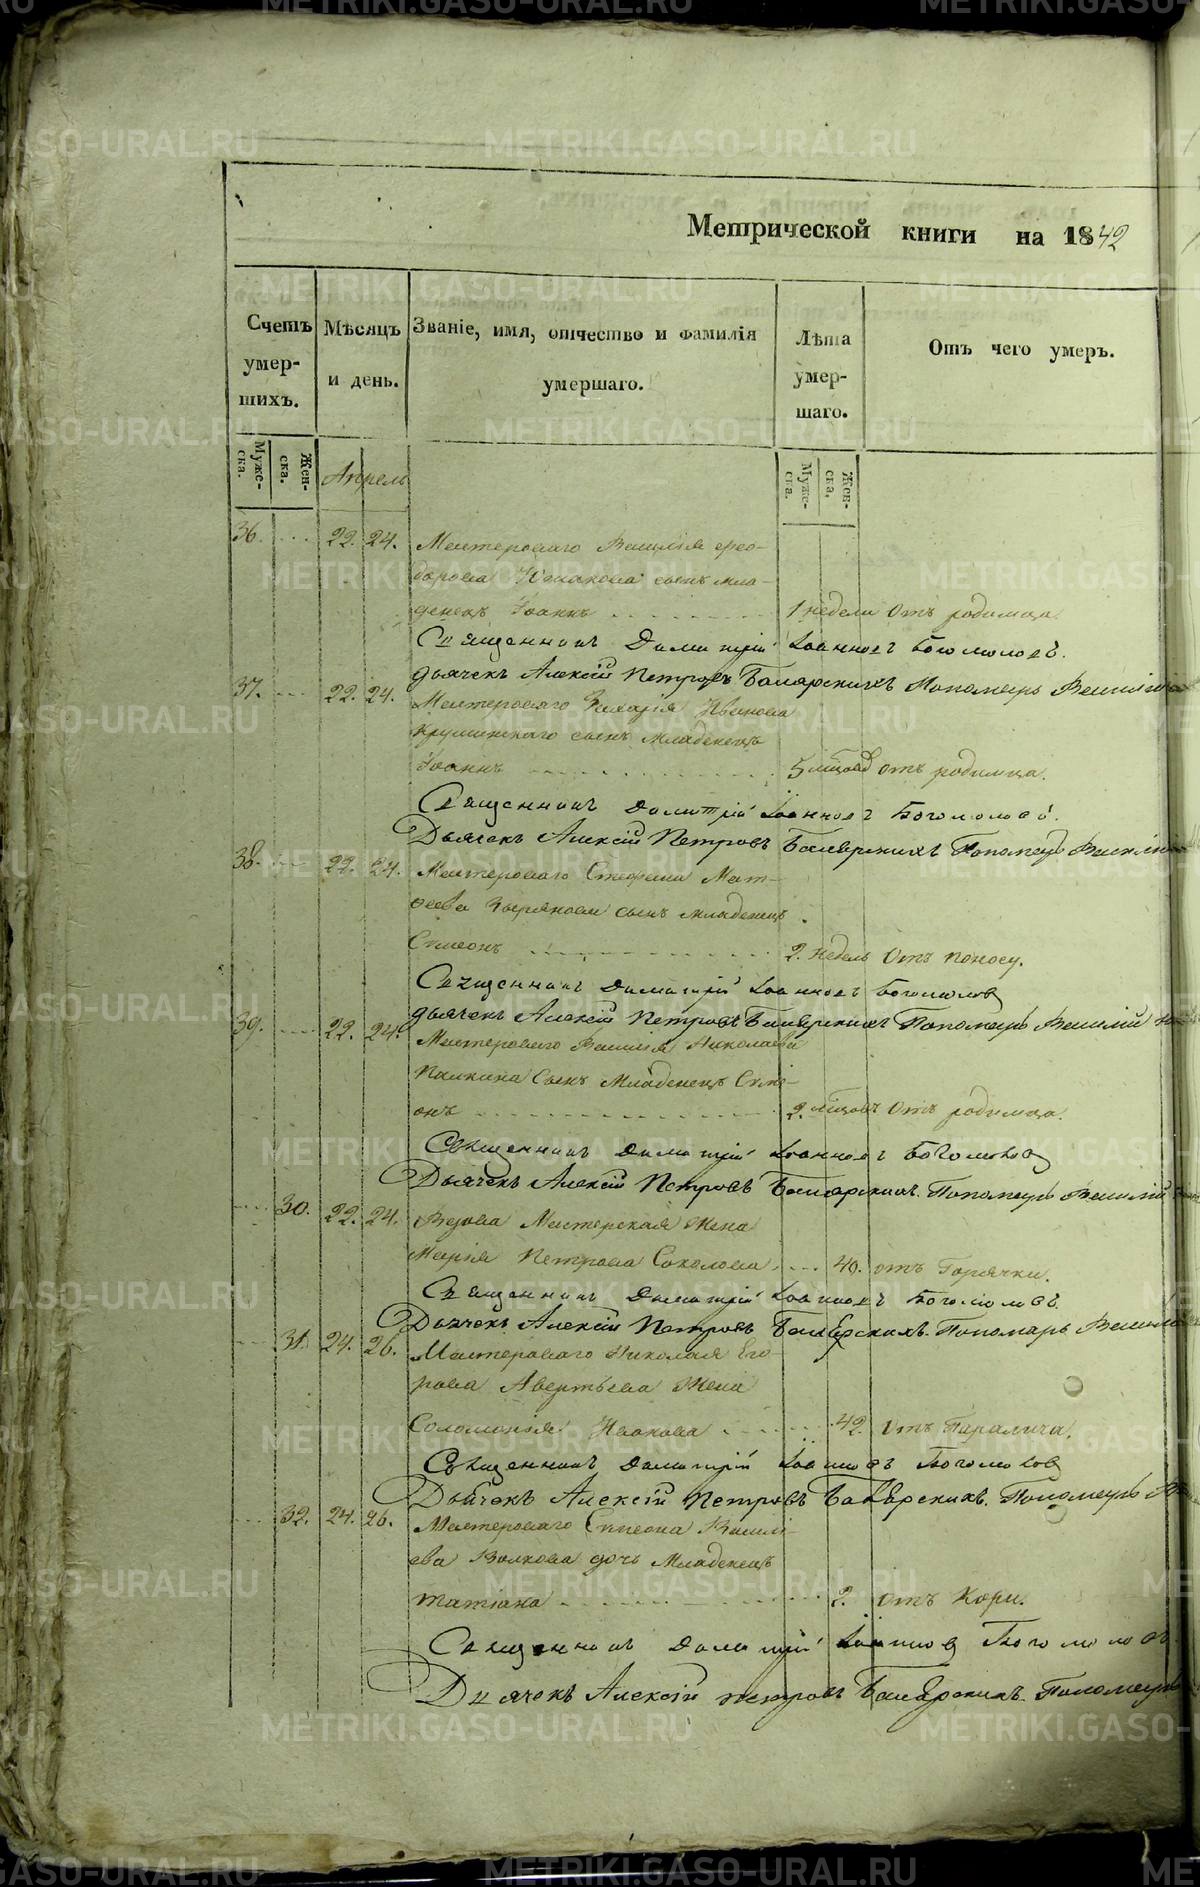 Метрической книги на 1842
Счетъ умер-шихъ.
Мѣсяцъ и день.
Званіе, имя, отчество и фамилія умершаго.
Лѣта умер-шаго.
Отъ чего умеръ.
Мужес-ка. Жен-ска.
Апрель
Мужес-ка. Жен-ска.
36. 22. 24. Мастероваго Василія Ѳео-
дорова сынъ мла-
денецъ Іоаннъ 1 недели Отъ родимца.
Священникъ Димитрій Іоанновъ Богомоловъ.
Дьячекъ Алексій Петровъ Пономарь Василій
37. 22. 24. Мастероваго Захарія Иванова
сынъ младенецъ
Іоаннъ 5 мѣсяц. отъ родимца.
Священникъ Димитрій Іоанновъ Богомоловъ.
Дьячекъ Алексій Петровъ Пономарь Василій
38. 22. 24. Мастероваго Стефана Мат-
ѳеева сынъ младенецъ
Симеонъ 2. недель Отъ поносу.
Священникъ Димитрій Іоанновъ Богомоловъ
дьячекъ Алексій Петровъ Пономарь Василій
39. 22. 24. Мастероваго Василія Николаева
Палкина сынъ младенецъ Симе-
онъ 2. мѣсяц. Отъ родимца.
Священникъ Димитрій Іоанновъ Богомоловъ
Дьячекъ Алексій Петровъ Пономарь Василій
30. 22. 24. Вдова Мастерская жена
Марія Петрова Соколова 40. отъ Горячки.
Священникъ Димитрій Іоанновъ Богомоловъ.
Дьячекъ Алексій Петровъ Пономарь Василій
31. 24. 26. Мастероваго Николая Его-
рова Авертьева жена
Соломонія Иванова 42. отъ Паралича.
Священникъ Димитрій Іоанновъ Богомоловъ
Дьячекъ Алексій Петровъ Пономарь
32. 24. 26. Мастероваго Симеона Васильи-
ева Волкова дочь младенецъ
татіана 2. отъ Кори.
Священникъ Димитрій Іоанновъ Богомоловъ.
Дьячекъ Алексій петровъ Пономарь
METRIKI.GASO-URAL.RU